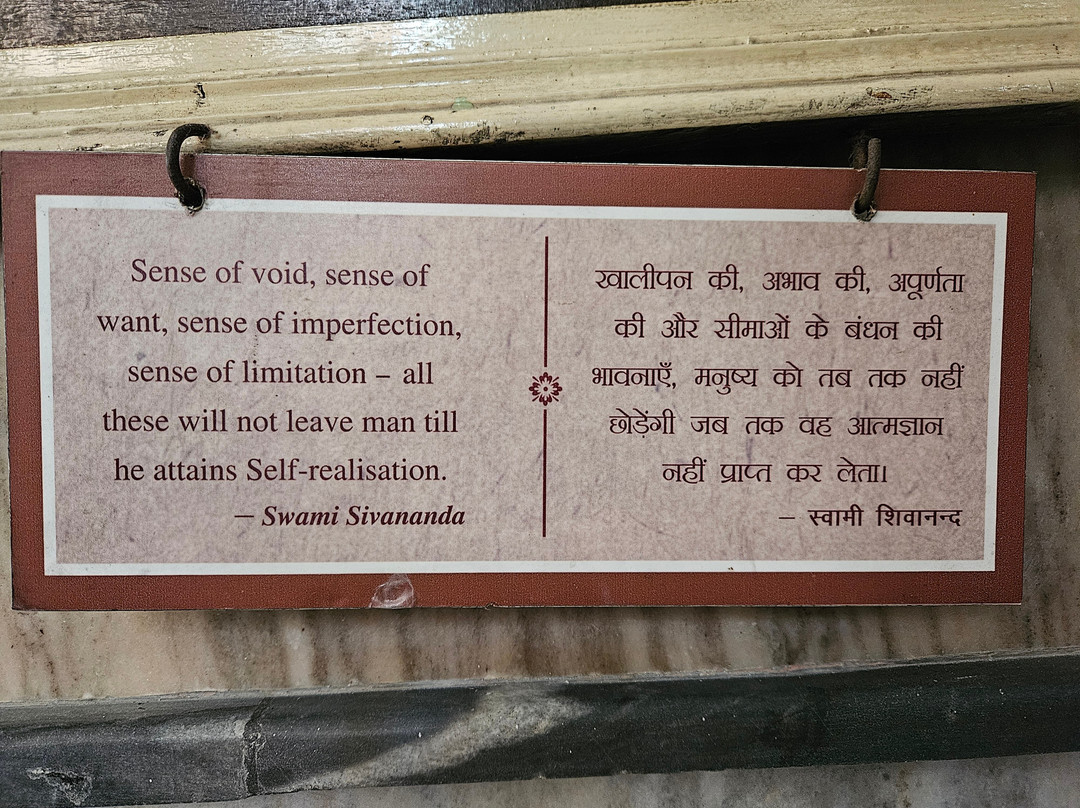 Sense of void, sense of
want, sense of imperfection,
sense of limitation – all
these will not leave man till
he attains Self-realisation.
– Swami Sivananda
खालीपन की, अभाव की, अपूर्णता
की और सीमाओं के बंधन की
भावनाएँ, मनुष्य को तब तक नहीं
छोड़ेंगी जब तक वह आत्मज्ञान
नहीं प्राप्त कर लेता।
– स्वामी शिवानन्द